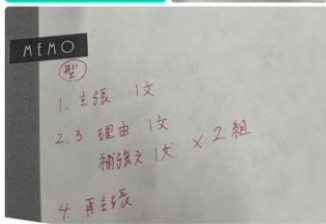 MEMO
型
1. 主張 1文
2.3 理由 1文
補強文 1文 × 2組
4. 再主張